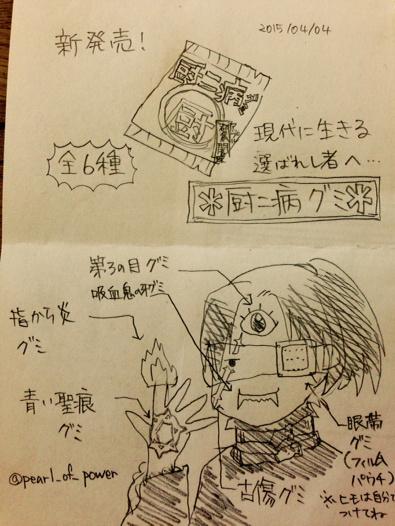 2015/04/04
新発売!
厨二病
厨
全6種
現代に生きる
選ばれし者へ…
*厨二病グミ*
第3の目グミ
吸血鬼の牙グミ
指から炎
グミ
青い聖痕
グミ
眼帯
グミ
(フィルム
パウチ)
※ヒモは自分で
つけてね
古傷グミ
@pearl_of_power